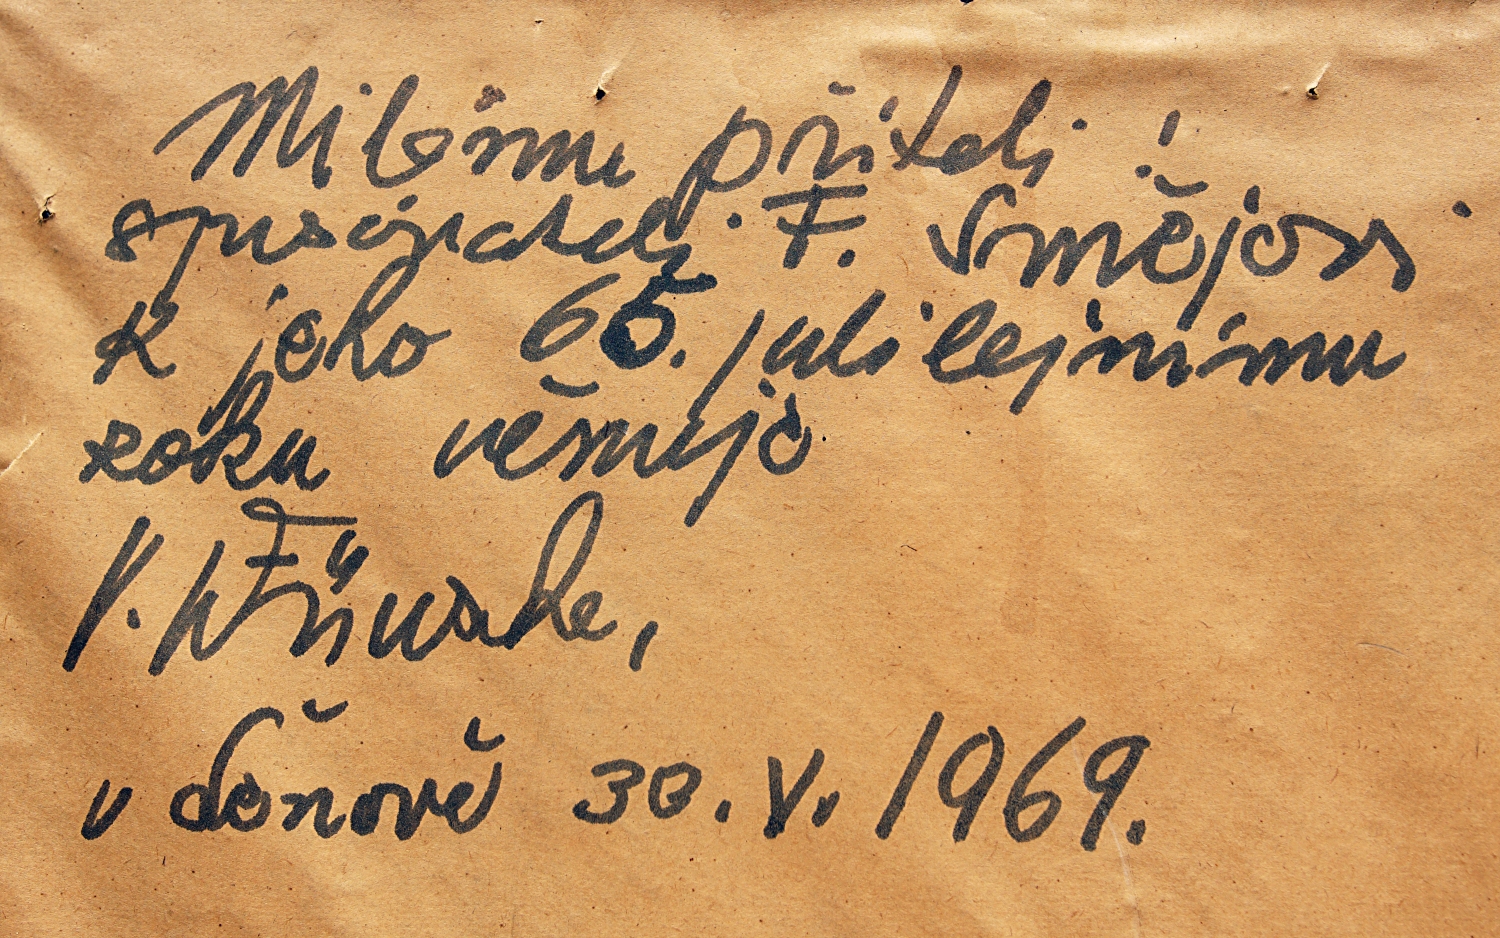 Milému příteli!
spisovateli F. Smějovi
k jeho 65. jubilejnímu
roku věnuje
V.
v Loňově 30. V. 1969.